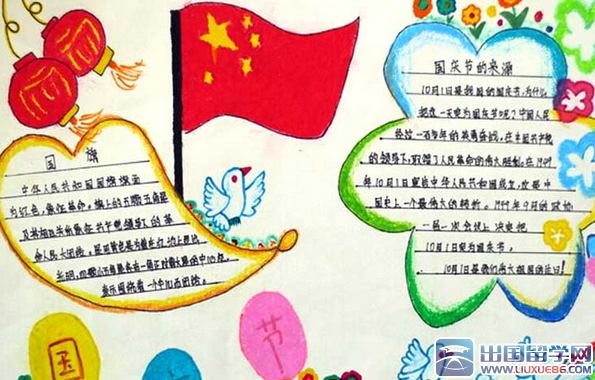 国 旗
中华人民共和国国旗旗面
为红色,象征革命。旗上的五颗五角星
及其相互关系象征共产党领导下的革
命人民大团结。
星用黄色是为
光明,四颗小五角星各有一角正对着大星的中心点,
表示围绕着一个中心而团结。
国庆节的来源
10月1日是我国的国庆节,为什么
把这一天定为国庆节呢?中国人民
经过一百多年的英勇奋战,在中国共产党
的领导下,取得了人民革命的伟大胜利。在1949
年10月1日宣告中华人民共和国成立,这是中
国历史上一个最伟大的转折。1949年9月的政协
一届一次会议上决定把
10月1日定为国庆节,
10月1日是我们伟大祖国的生日!
国
节
出国留学网
WWW.LIUXUE86.COM